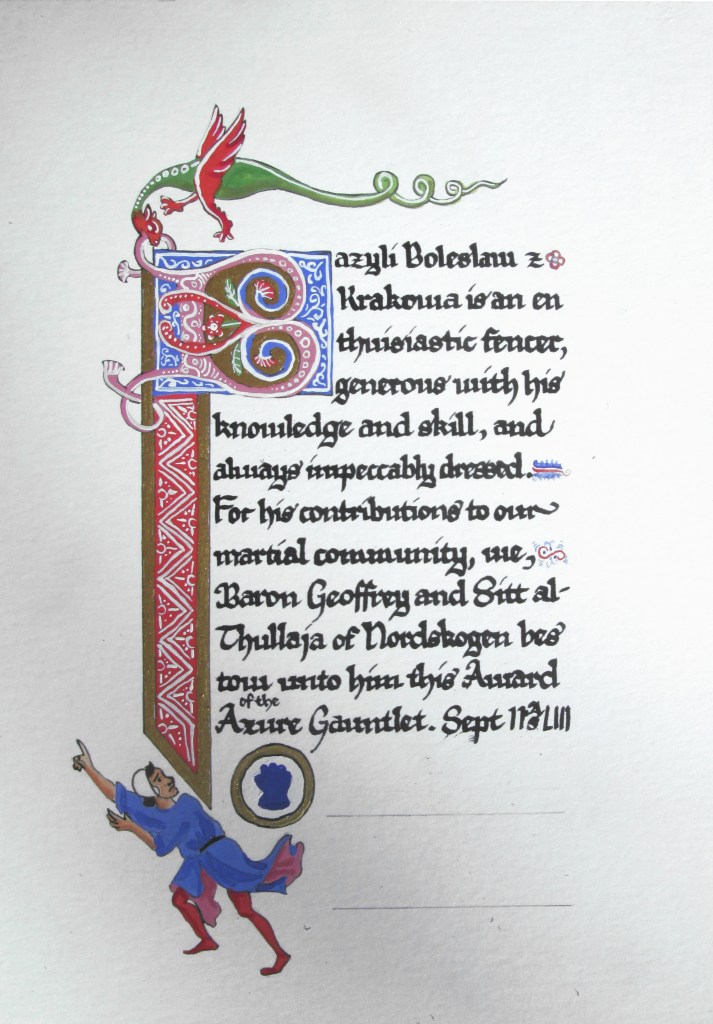 Bazyli Boleslaw z
Krakowa is an en
thusiastic fencer,
generous with his
knowledge and skill, and
always impeccably dressed.
For his contributions to our
martial community, we,
Baron Geoffrey and Sitt al-
Thullaja of Nordskogen bes
tow unto him this Award
of the
Azure Gauntlet. Sept LIII